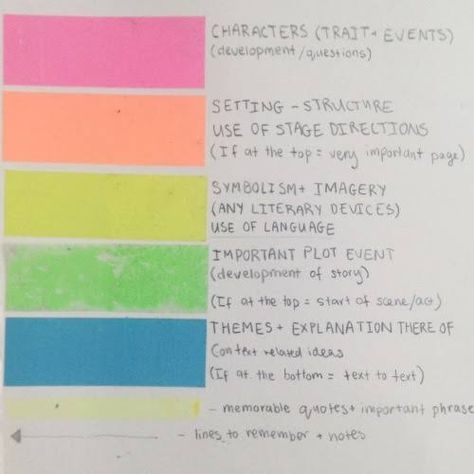 CHARACTERS (TRAIT + EVENTS)
(development/questions)
SETTING - STRUCTURE
USE OF STAGE DIRECTIONS
(If at the top = very important page)
SYMBOLISM + IMAGERY
(ANY LITERARY DEVICES)
USE OF LANGUAGE
IMPORTANT PLOT EVENT
(development of story)
(If at the top = start of scene/act)
THEMES + EXPLANATION THERE OF
Context related ideas
(If at the bottom = text to text)
- memorable quotes + important phrase
- lines to remember + notes